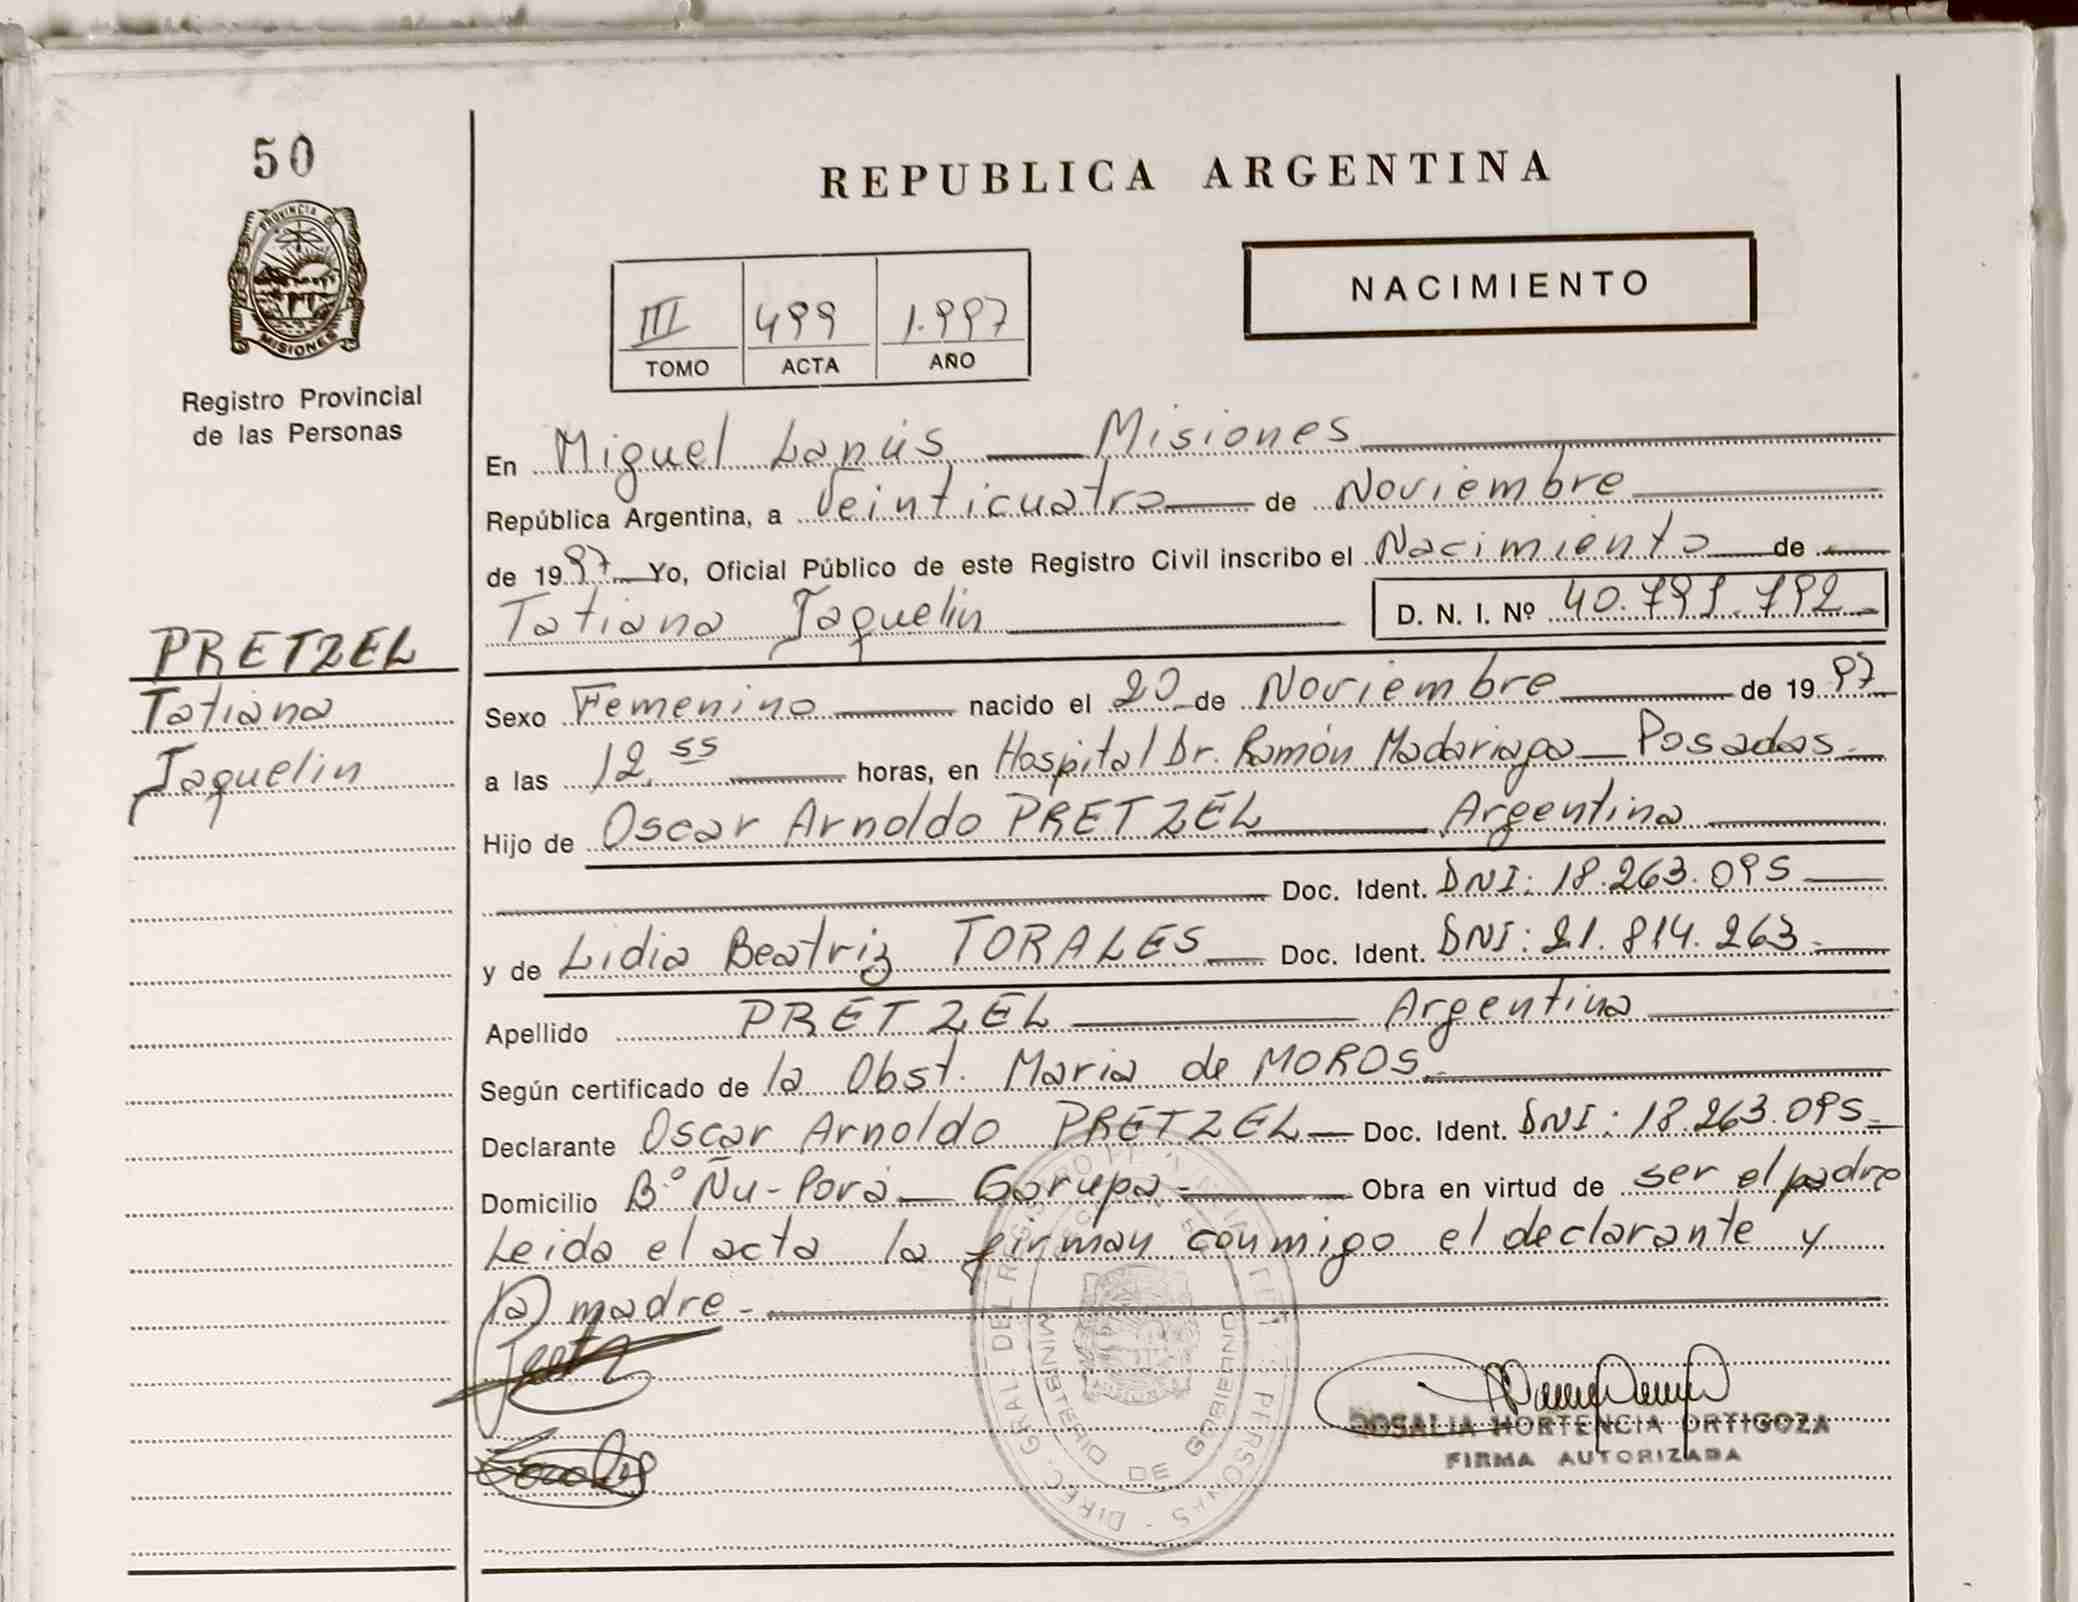 50
PROVINCIA D
MISIONES
Registro Provincial
de las Personas
PRETZEL
Tatiana
Jaquelin
REPUBLICA ARGENTINA
NACIMIENTO
III 499 1.997
TOMO ACTA AÑO
En Miguel Lanús Misiones
República Argentina, a Veinticuatro de Noviembre
de 1997 Yo, Oficial Público de este Registro Civil inscribo el Nacimiento de
Tatiana Jaquelin D. N. I. Nº
Sexo Femenino nacido el 20 de Noviembre de 1997
a las 12.55 horas, en Hospital Dr. Ramón Madariaga Posadas
Hijo de Oscar Arnoldo PRETZEL Argentina
Doc. Ident. DNI: 18.263.095
y de Lidia Beatriz TORALES Doc. Ident. DNI: 21.814.263
Apellido PRETZEL Argentina
Según certificado de la Obst. Maria de MOROS
Declarante Oscar Arnoldo PRETZEL Doc. Ident. DNI: 18.263.095
Domicilio B.º Ñu-Porá Garupa Obra en virtud de ser el padre
Leida el acta la firman conmigo el declarante y
la madre.
ROSALIA HORTENCIA ORTIGOZA
FIRMA AUTORIZADA
MINISTERIO DE GOBIERNO